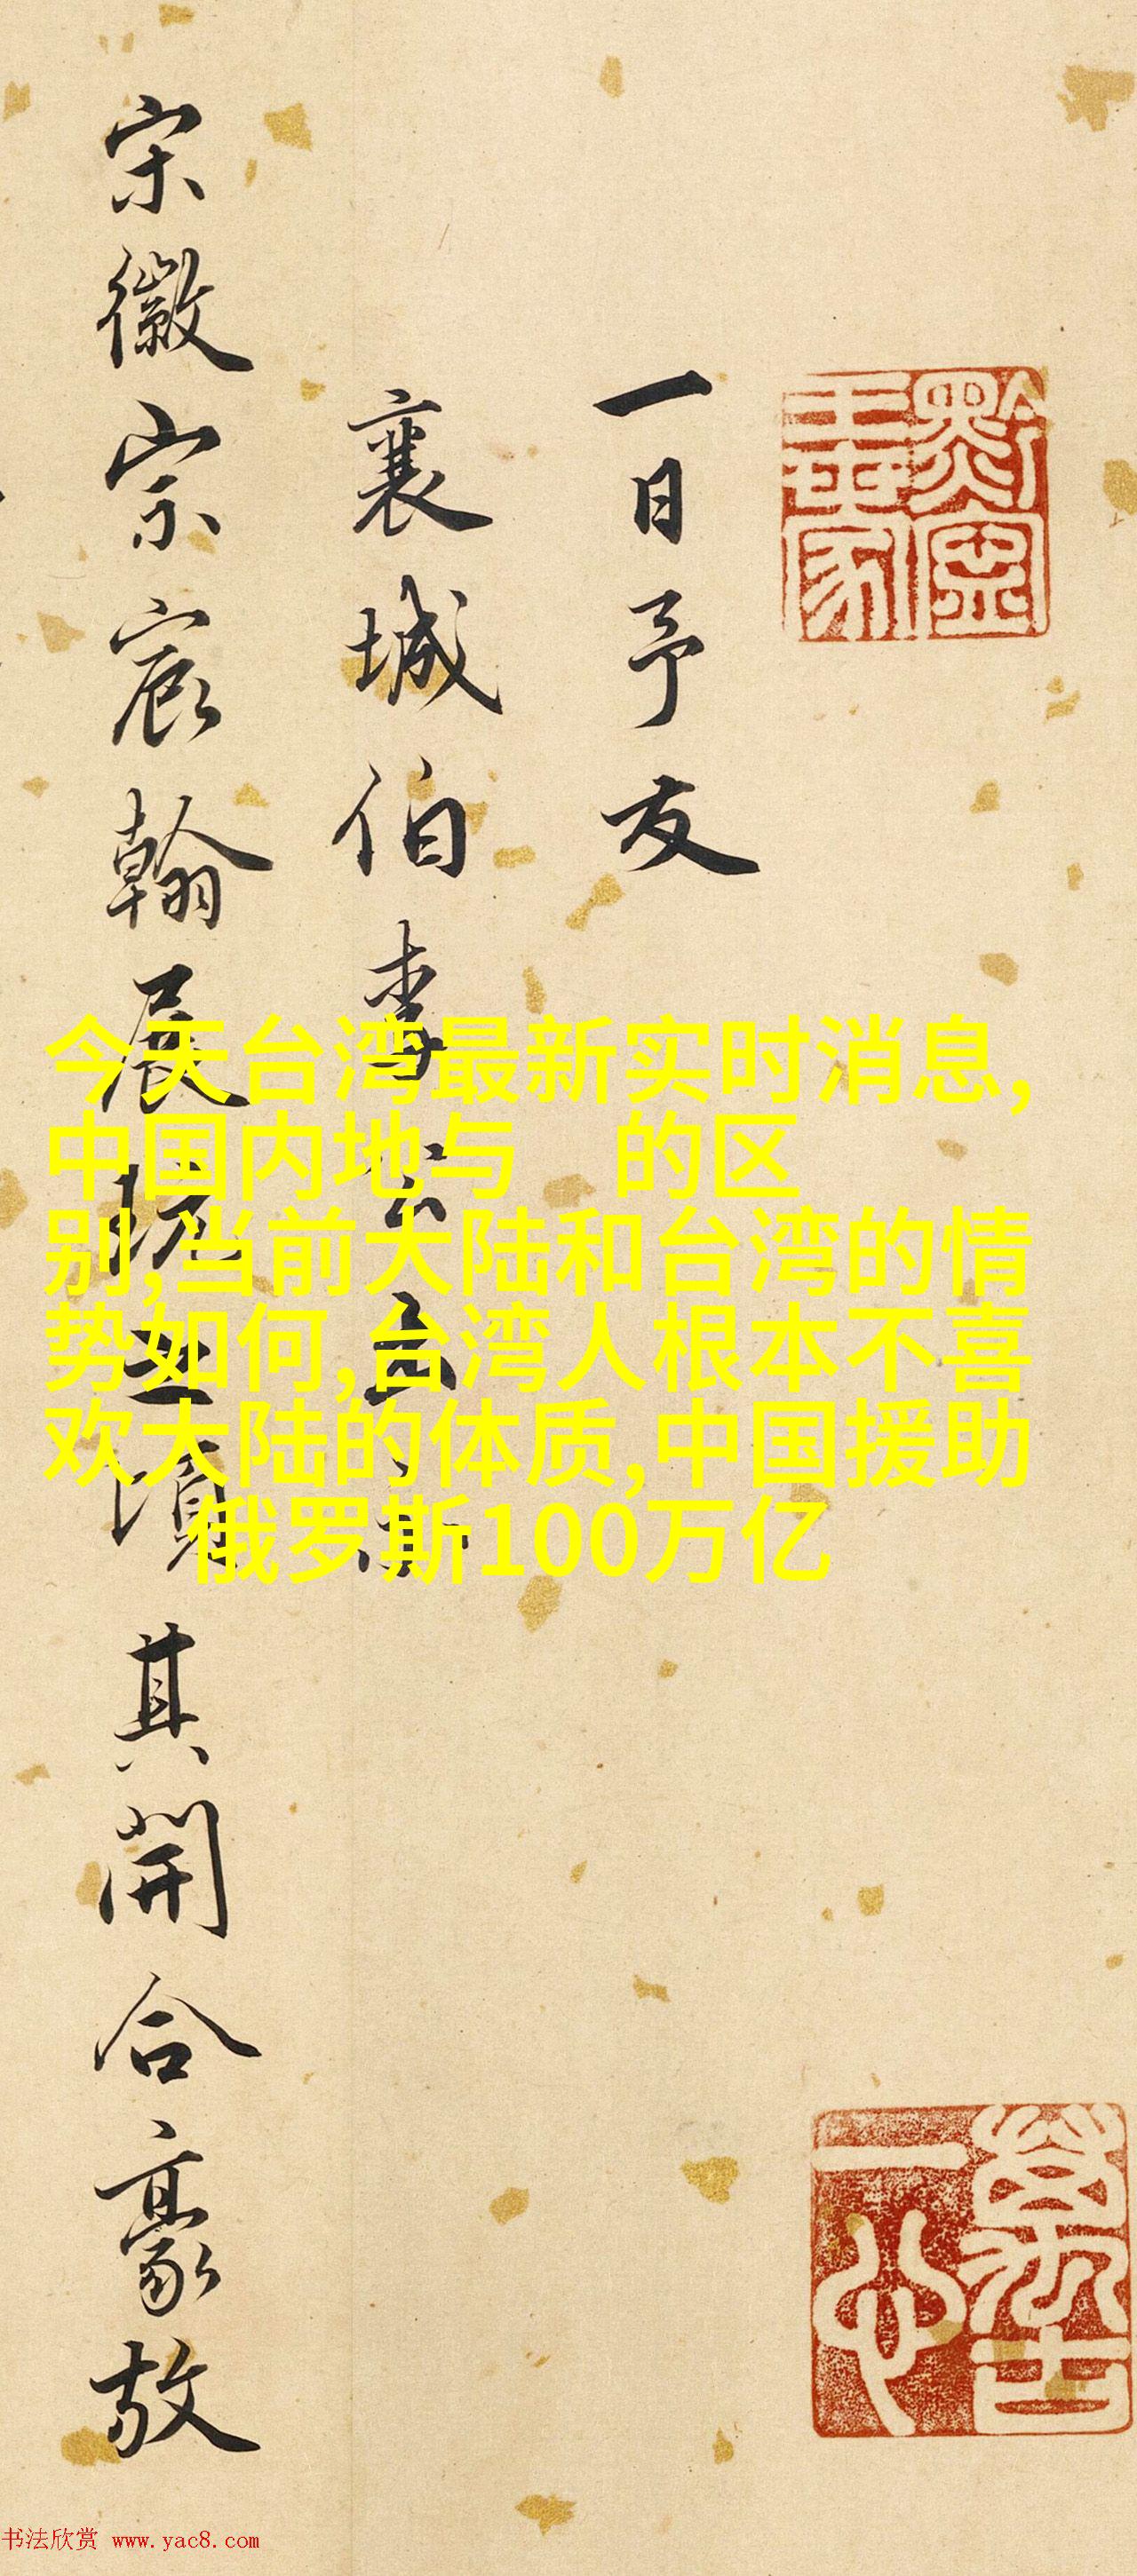 一日予友
襄城伯李公示
宋徽宗宸翰展玩之頃其開合豪放
今天台湾最新实时消息,
中国内地与 的区
别,当前大陆和台湾的情
势如何,台湾人根本不喜
欢大陆的体质,中国援助
俄罗斯100万亿
黔寧王世家
萬古一心
书法欣赏 www.yac8.com